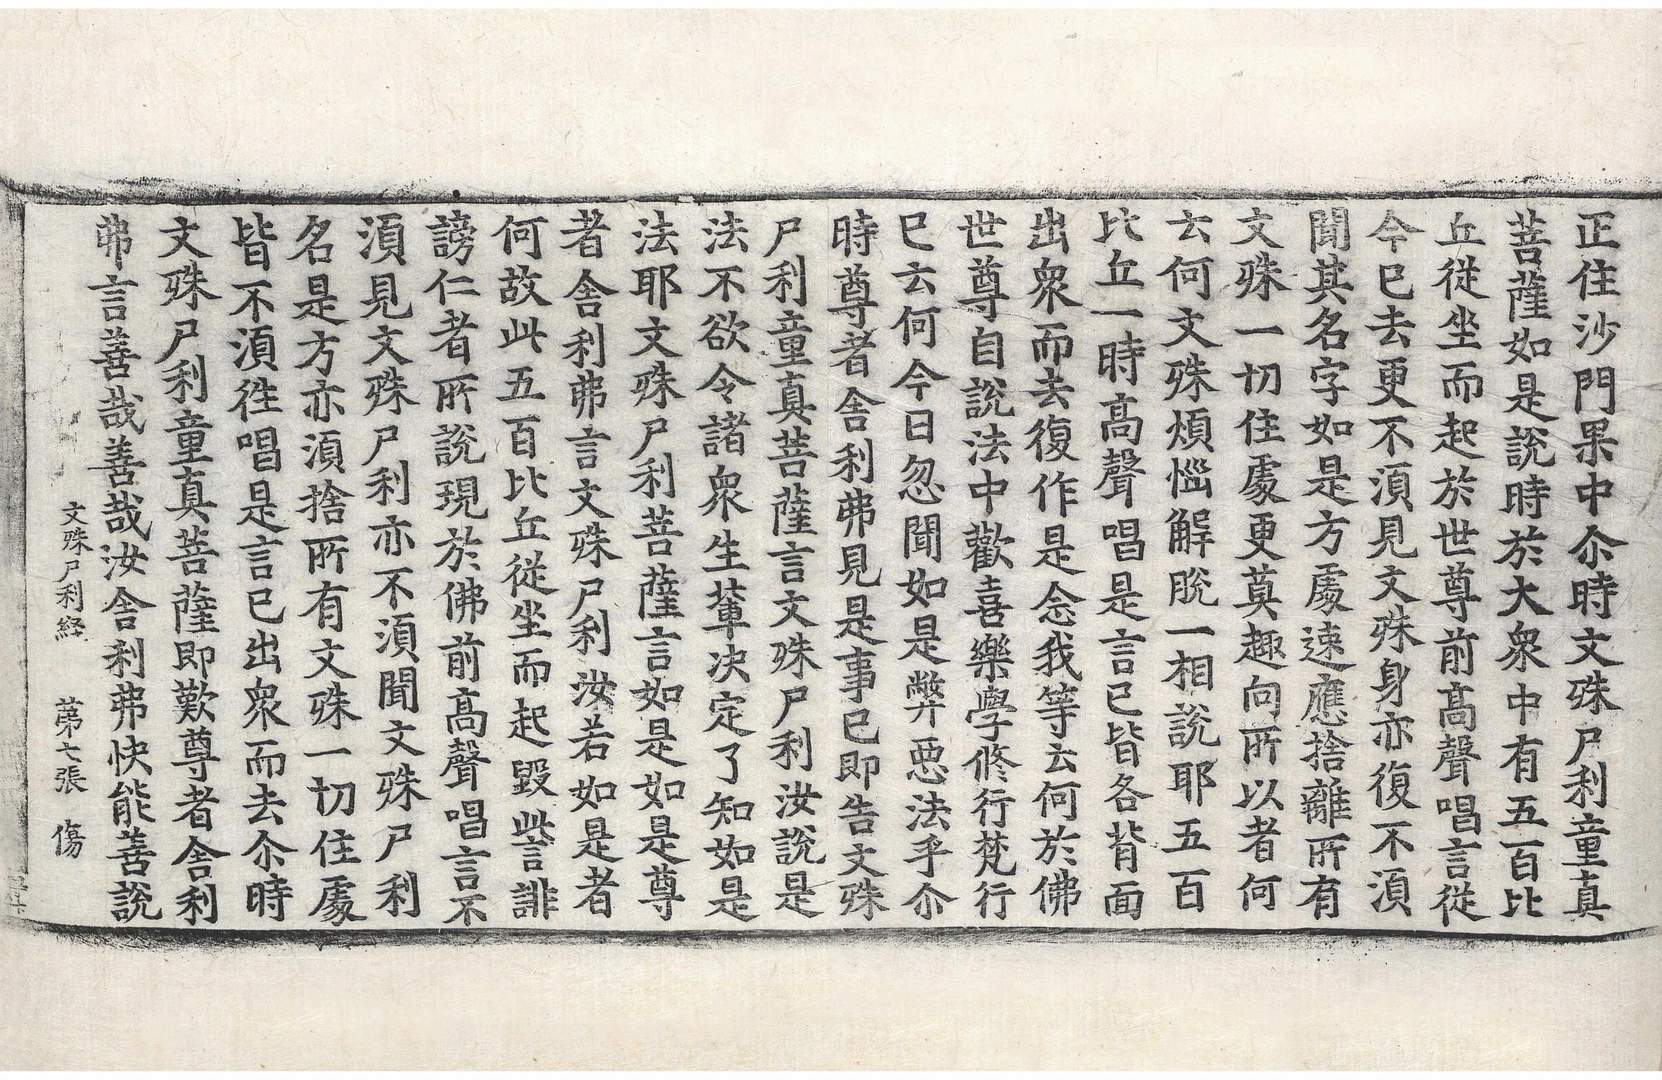 正住沙門果中尒時文殊尸利童真
菩薩如是說時於大衆中有五百比
丘從坐而起於世尊前髙聲唱言從
今已去更不湏見文殊身亦復不湏
聞其名字如是方處速應捨離所有
文殊一切住處更莫趣向所以者何
云何文殊煩惱解脫一相說耶五百
比丘一時髙聲唱是言已皆各背面
出衆而去復作是念我等云何於佛
世尊自說法中歡喜樂學修行梵行
已云何今日忽聞如是弊惡法乎尒
時尊者舍利弗見是事已即告文殊
尸利童真菩薩言文殊尸利汝說是
法不欲令諸衆生軰决定了知如是
法耶文殊尸利菩薩言如是如是尊
者舍利弗言文殊尸利汝若如是者
何故此五百比丘從坐而起毀呰言誹
謗仁者所說現於佛前髙聲唱言不
湏見文殊尸利亦不湏聞文殊尸利
名是方亦湏捨所有文殊一切住處
皆不湏徃唱是言已出衆而去尒時
文殊尸利童真菩薩即歎尊者舍利
弗言善哉善哉汝舍利弗快能善說
文殊尸利経 第七張 傷